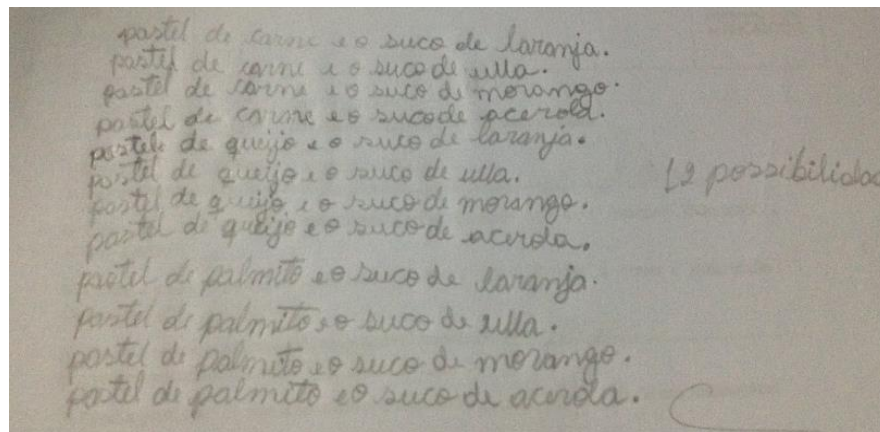 pastel de carne e o suco de laranja.
pastel de carne e o suco de ulla.
pastel de carne e o suco de morango.
pastel de carne e o suco de acerola.
pastele de queijo e o suco de laranja.
pastel de queijo e o suco de ulla.
pastel de queijo e o suco de morango.
pastel de queijo e o suco de acerola.
12 possibilidad
pastel de palmito e o suco de laranja.
pastel de palmito e o suco de ulla.
pastel de palmito e o suco de morango.
pastel de palmito e o suco de acerola.